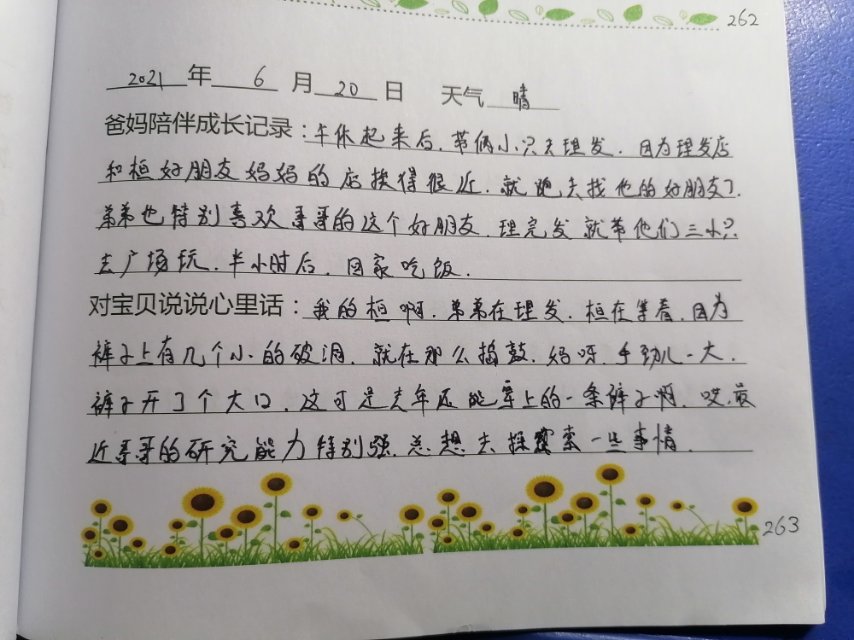 262
2021年6月20日 天气 晴
爸妈陪伴成长记录:午休起来后,带俩小只去理发,因为理发店
和桓好朋友妈妈的店挨得很近,就跑去找他的好朋友了,
弟弟也特别喜欢哥哥的这个好朋友,理完发就带他们三小只
去广场玩,半小时后,回家吃饭。
对宝贝说说心里话:我的桓啊,弟弟在理发,桓在等着,因为
裤子上有几个小的破洞,就在那么捣鼓,妈呀,手劲儿一大,
裤子开了个大口,这可是去年还能穿上的一条裤子啊,哎,最
近哥哥的研究能力特别强,总想去探索一些事情。
263